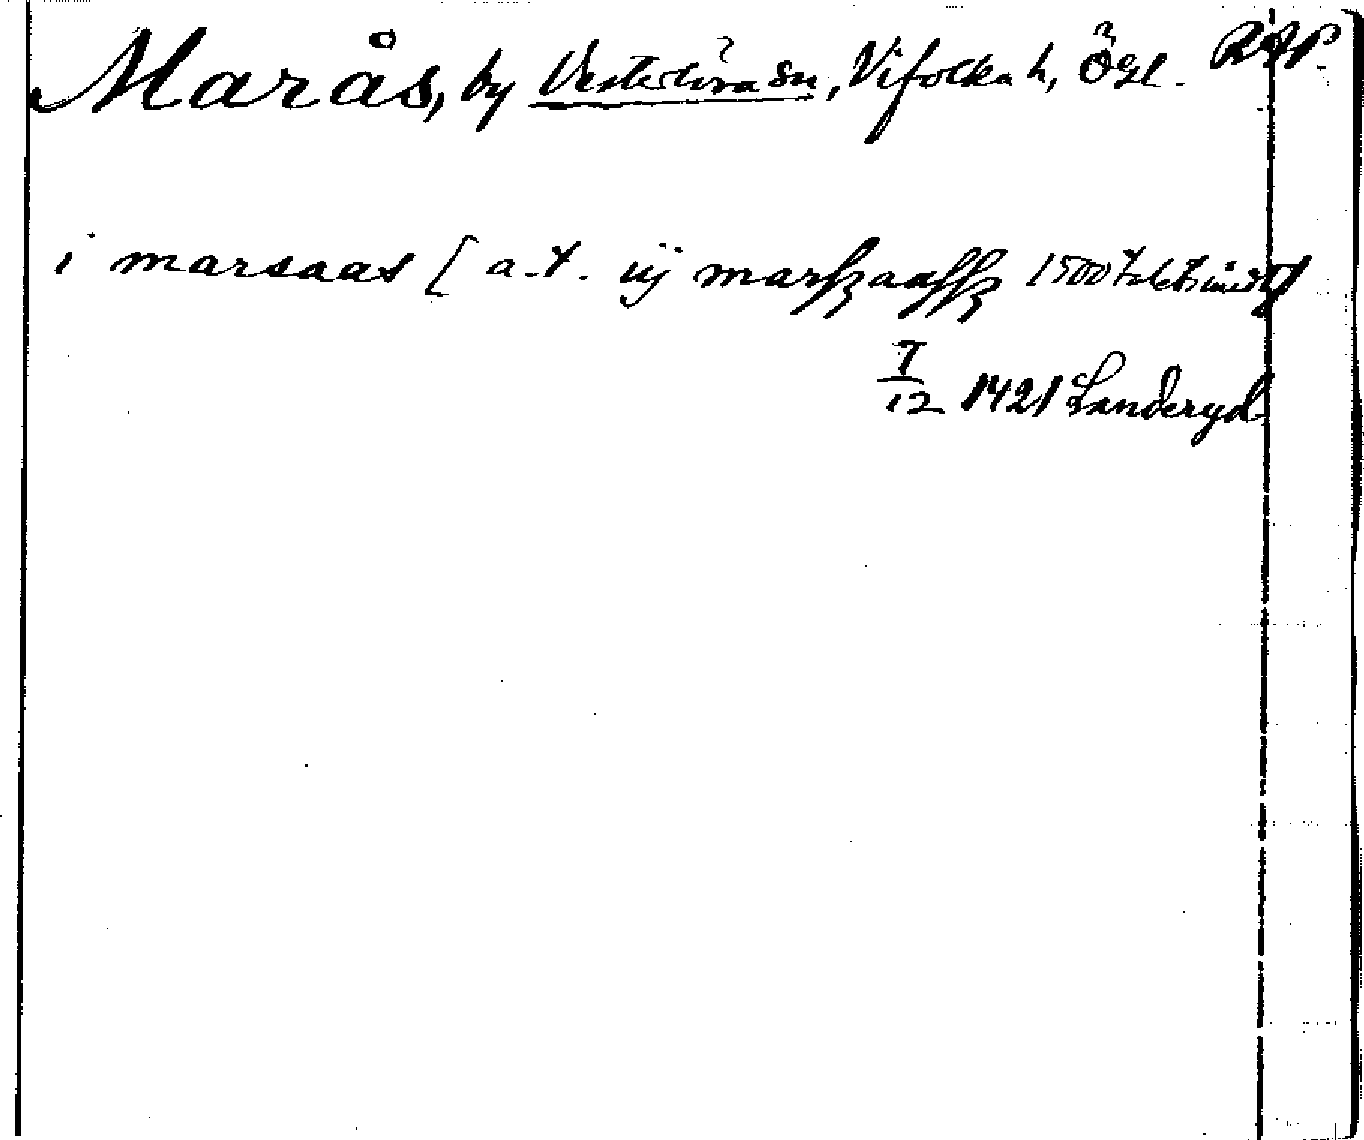 Marås, by Vesterlösa sn, Vifolka h, Ögl. RAP.
i marsaas [ a.t. iij marsszaassz 1500talets
7/12 1421 Landeryd